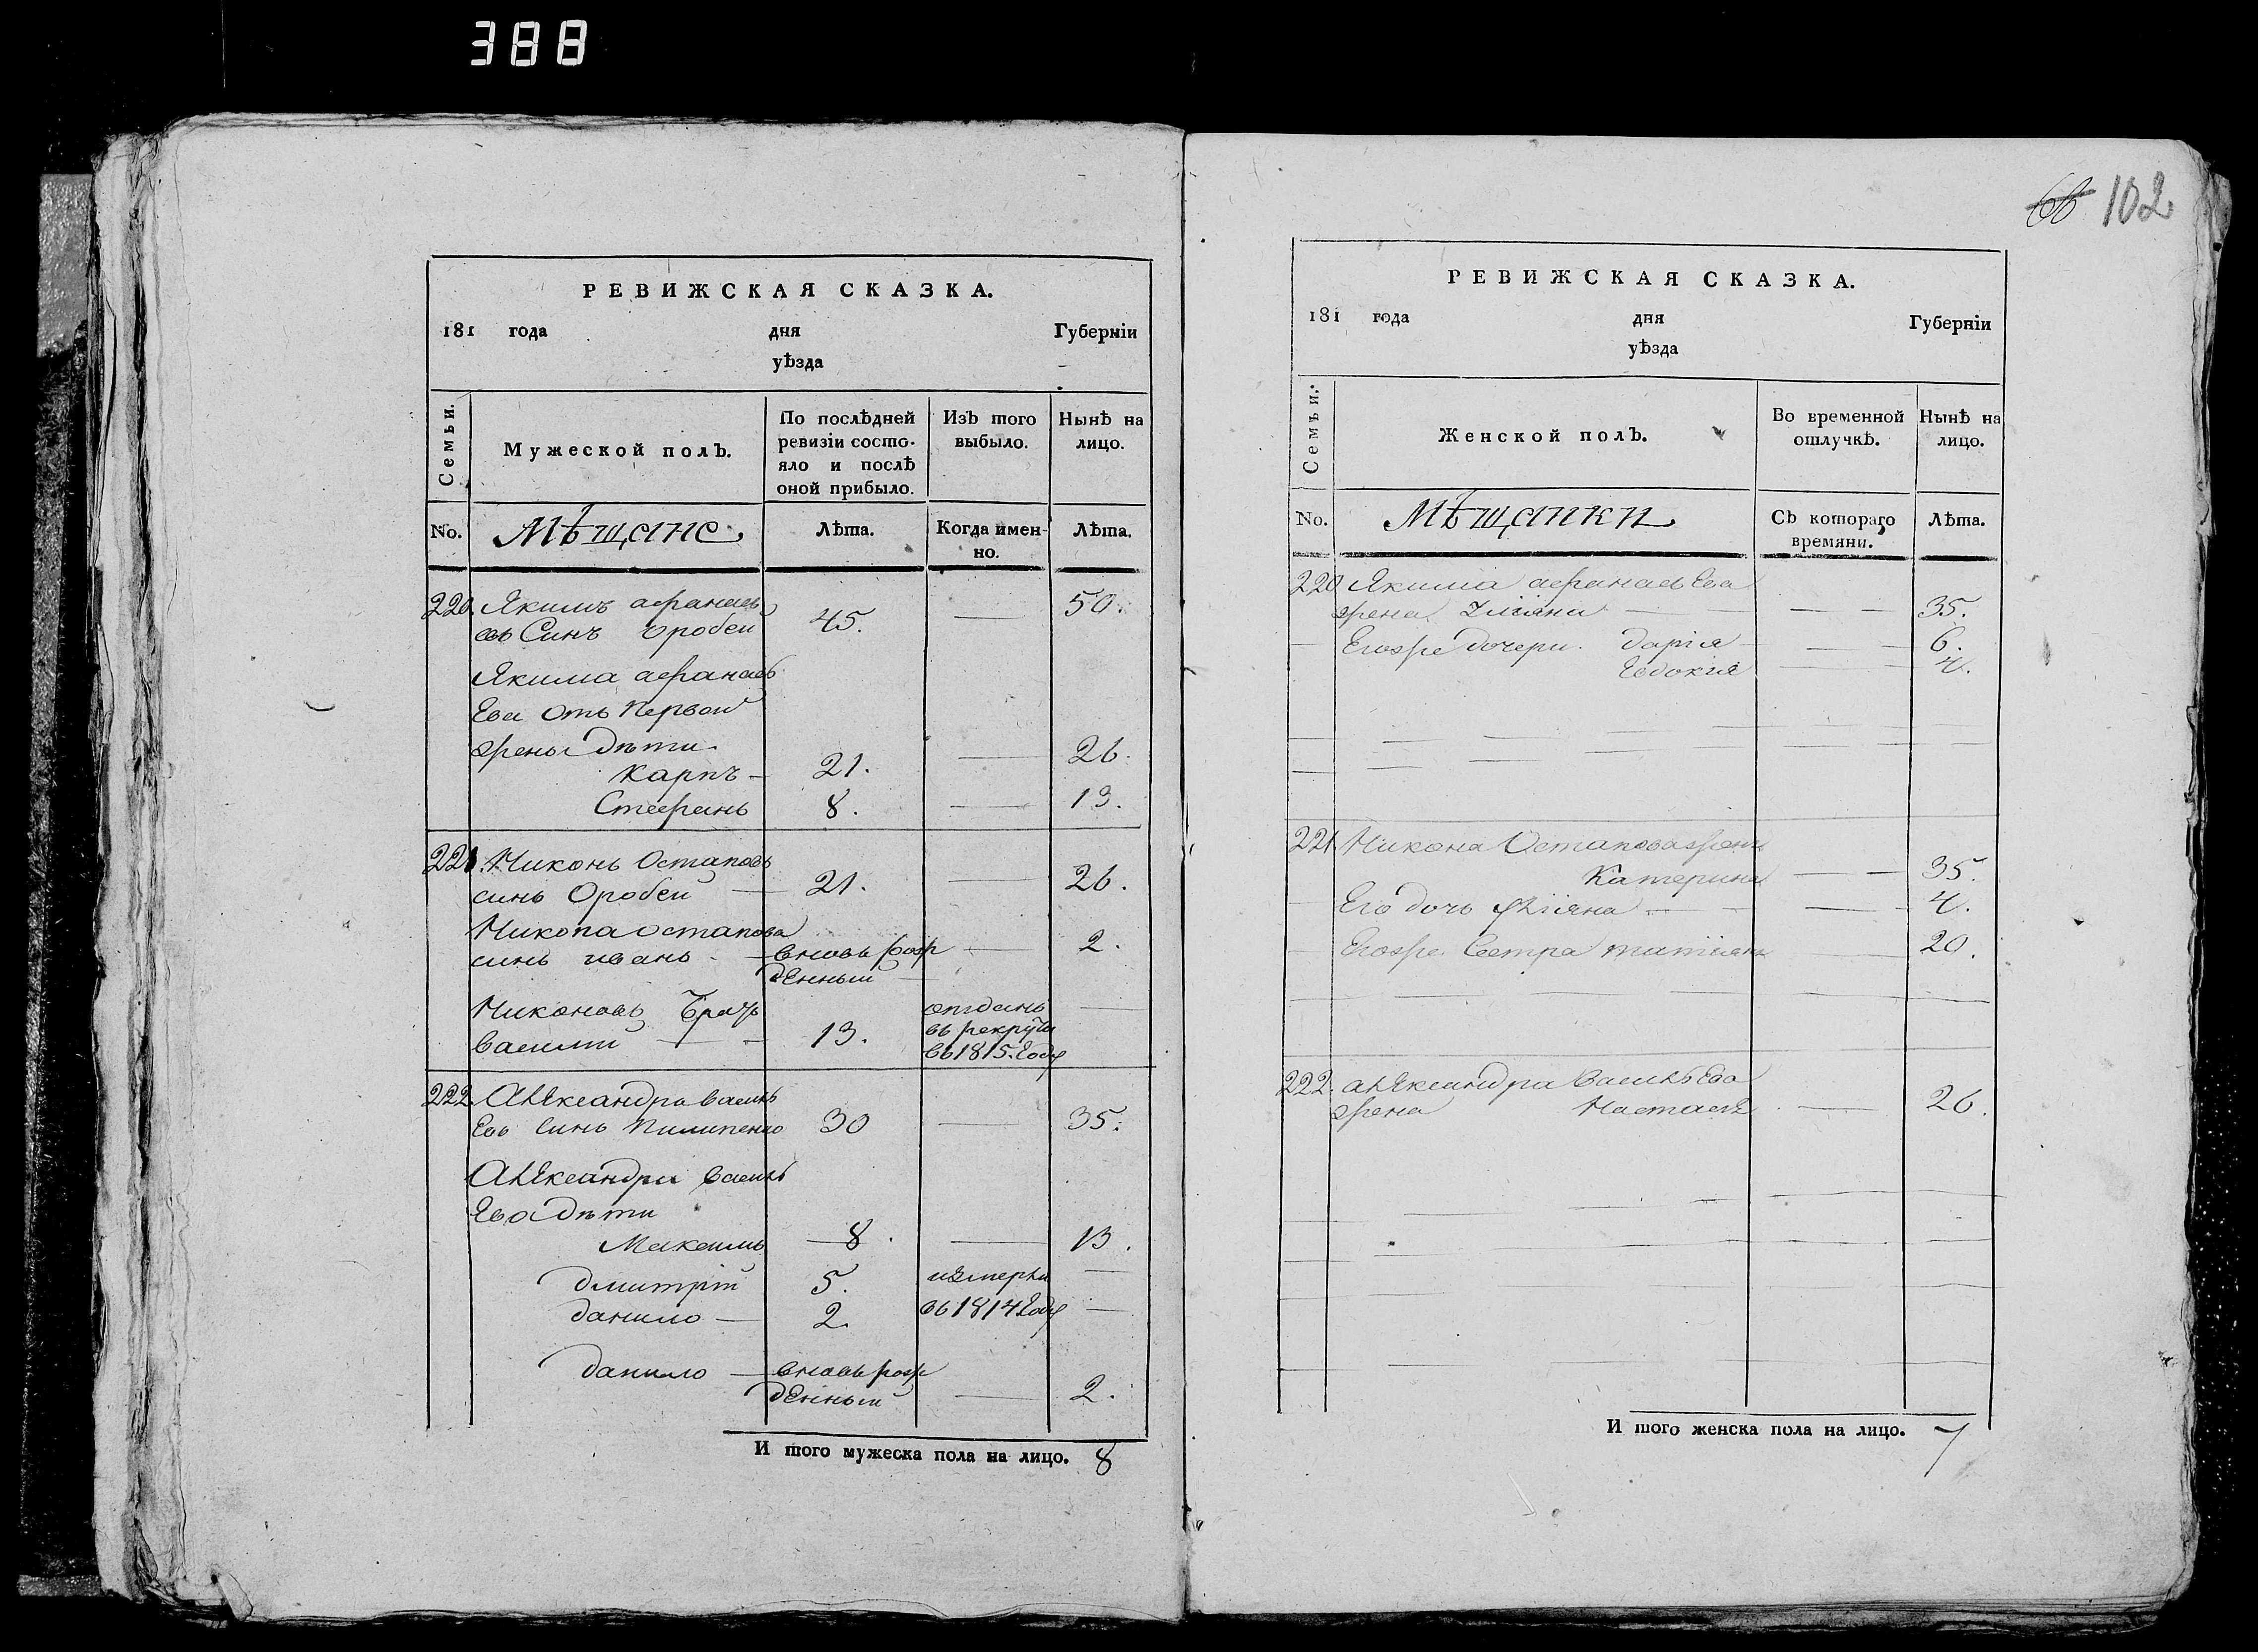 388
РЕВИЖСКАЯ СКАЗКА.
181 года дня Губерніи
уѣзда
Семьи.
Мужеской полъ.
По послѣдней ревизіи состояло и послѣ оной прибыло.
Изъ того выбыло.
Нынѣ на лицо.
No.
Мѣщане
Лѣта.
Когда именно.
Лѣта.
220. Якимъ афанаев
въ Синъ оробей 45. — 50.
Якима афанаев
Ева отъ первой
жены дѣти.
Карпъ — 21. — 26.
Стефанъ 8. — 13.
221. Никонъ Остаповъ
синъ Оробей — 21. — 26.
Никона остапова
синъ иванъ — вновь рож — 2.
денный
Никоновъ Братъ отданъ —
Василий — 13. въ рекруты
въ 1815. Году
222. Александра васил
Евъ Синъ Пилипенко 30 — 35.
Александра василь
Ева дѣти
Максимъ — 8. — 13.
дмитрій 5. измерли —
данило — 2. въ 1814 Году —
данило — вновь рож
денный — 2.
И того мужеска пола на лицо. 8
66 102
РЕВИЖСКАЯ СКАЗКА.
181 года дня Губерніи
уѣзда
Семьи.
Женской полъ.
Во временной отлучкѣ.
Нынѣ на лицо.
No.
Мѣщанки
Съ котораго времяни.
Лѣта.
220 Якима афанаевЕва
жена — — — 35.
Егожъ дочери. дарія — — 6.
Евдокия — 4.
221. Никона Остапова жена
Катерина — — 35.
Его дочь — — 4.
Егожъ Сестра татияна — 20.
222. александра ВасильЕва
жена Настасія — 26.
И того женска пола на лицо. 7